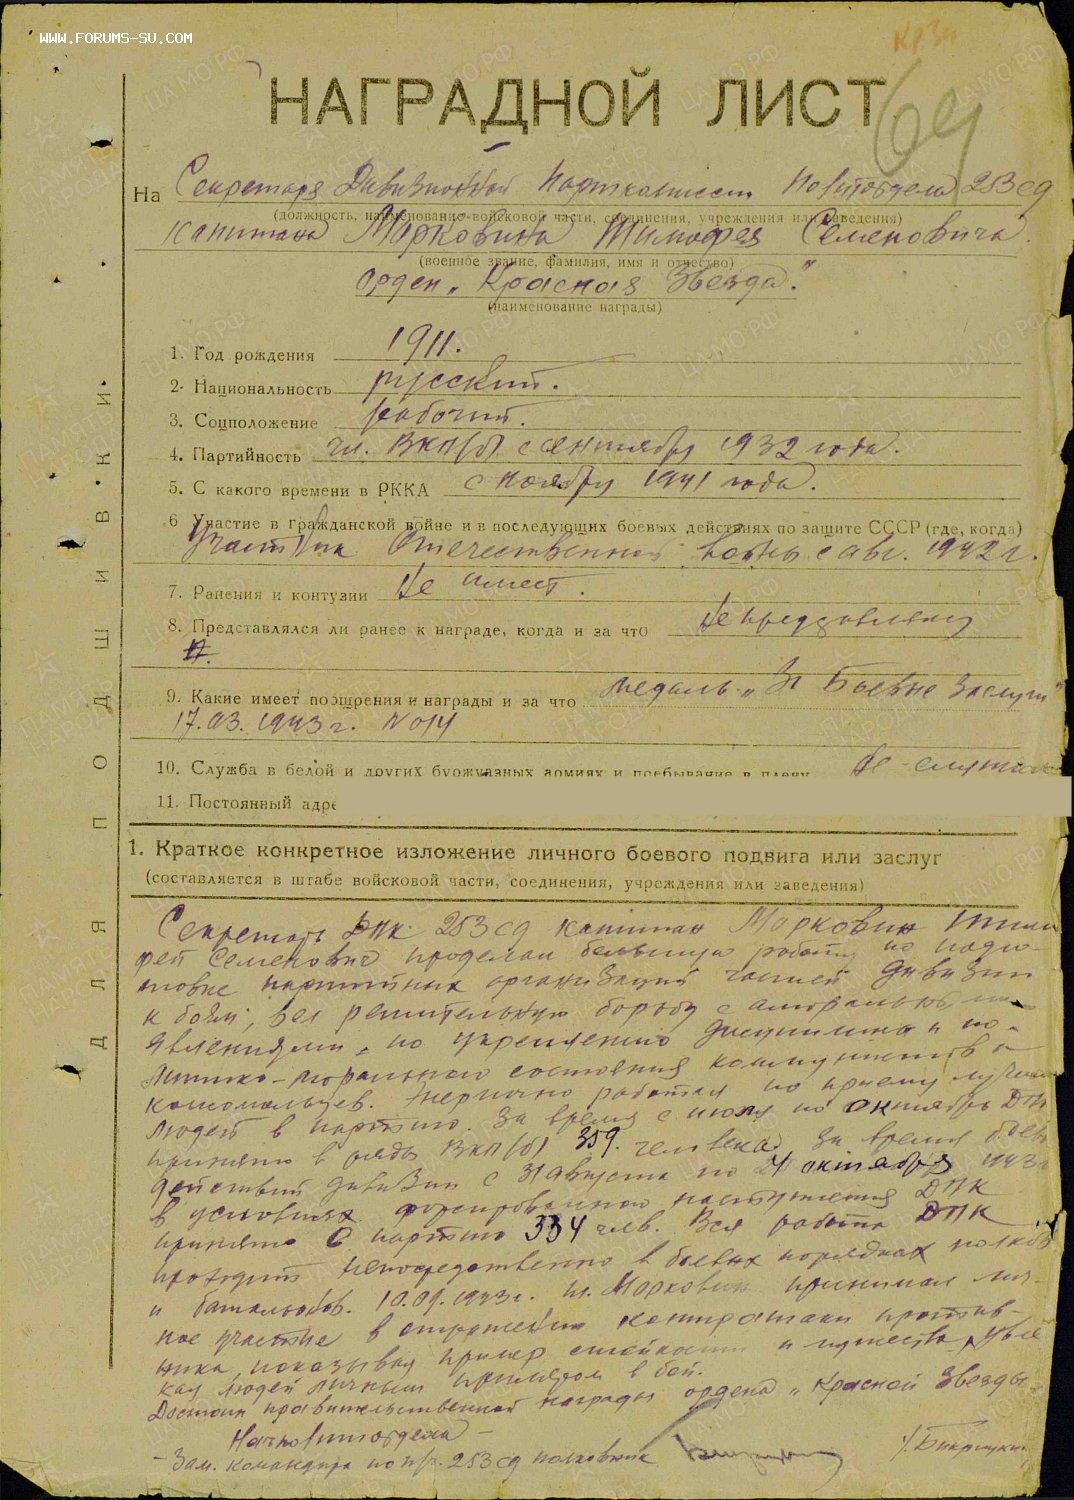 WWW.FORUMS-SU.COM
Кр Зв
НАГРАДНОЙ ЛИСТ
69
На Секретаря Дивизионной парткомиссии политотдела 253 сд
(должность, наименование войсковой части, соединения, учреждения или заведения)
капитана Марковина Тимофея Семеновича
(военное звание, фамилия, имя и отчество)
орден „Красная Звезда."
(наименование награды)
1. Год рождения 1911.
2. Национальность русский.
3. Соцположение рабочий.
4. Партийность чл. ВКП(б) с сентября 1932 года.
5. С какого времени в РККА с ноября 1941 года.
6 Участие в гражданской войне и в последующих боевых действиях по защите СССР (где, когда)
Участник Отечественной войны с авг. 1942 г.
7. Ранения и контузии Не имеет.
8. Представлялся ли ранее к награде, когда и за что Не представлялся
9. Какие имеет поощрения и награды и за что медаль „За Боевые Заслуги"
17.03.1943 г. №014
10. Служба в белой и других буржуазных армиях и пребывание в плену Не служил
11. Постоянный адре
ДЛЯ ПОДШИВКИ
1. Краткое конкретное изложение личного боевого подвига или заслуг
(составляется в штабе войсковой части, соединения, учреждения или заведения)
Секретарь ДПК 253 сд капитан Марковин Тимо
фей Семенович проделал большую работу по подго-
товке партийных организаций частей дивизии
к боям, вел решительную борьбу с аморальными про
явлениями, по укреплению дисциплины и по-
литико-морального состояния коммунистов и
комсомольцев. Энергично работал по приему лучших
людей в партию. За время с июля по октябрь ДПК
принято в ряды ВКП(б) 359 человека. За время боевых
действий дивизии с 31 августа по 24 октября 1943 г
в условиях форсированного наступления ДПК
принято в партию 334 чел. Вся работа ДПК
проходит непосредственно в боевых порядках полков
и батальонов. 10.09.1943 г. т. Марковин принимал лич-
ное участие в отражении контратаки против-
ника, показывая пример стойкости и мужества, увле
кая людей личным примером в бой.
Достоин правительственной награды ордена „Красной Звезды"
Нач политотдела -
- Зам. командира по п/ч 253 сд полковник